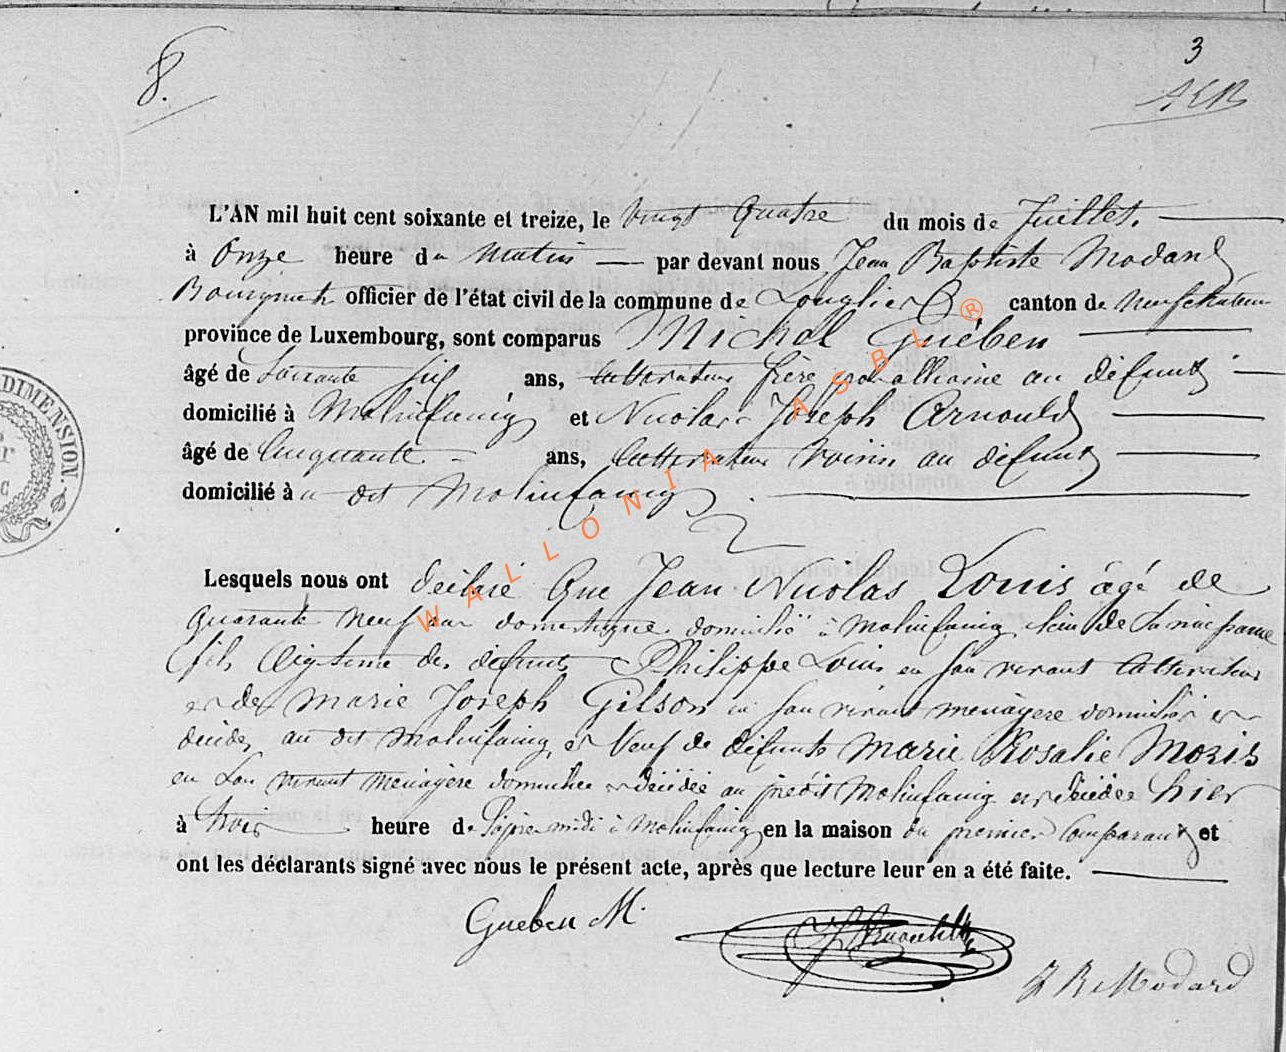 8.
3
L'AN mil huit cent soixante et treize, le Vingt Quatre du mois de Juillet.
à Onze heure du Matin par devant nous Jean Baptiste Modard
Bourgmetr officier de l'état civil de la commune de Longlier canton de Neufchateau
province de Luxembourg, sont comparus Michel Guében
âgé de Soixante Six ans, Cultivateur frère au défunt
domicilié à Molinfaing et Nicolas Joseph Arnould
âgé de Cinquante ans, Cultivateur voisin au défunt
domicilié à u dit Molinfaing
WALLONIA ASBL ®
Lesquels nous ont déclaré Que Jean Nicolas Louis âgé de
quarante neuf ans domestique domicilié à Molinfaing lieu de Sa naissance
fils légitime des défunts Philippe Louis en son vivant Cultivateur
et de Marie Joseph Gilson en son vivant menagere domiciliés et
décédés au dit Molinfaing et Veuf de défunte Marie Rosalie Moris
en son vivant menagère domiciliée et décédée au prédit Molinfaing est décédée hier
à trois heure de l'après midi à Molinfaing en la maison du premier Comparant et
ont les déclarants signé avec nous le présent acte, après que lecture leur en a été faite.
Gueben M.
J Arnould
J B Modard
DIMENSION.